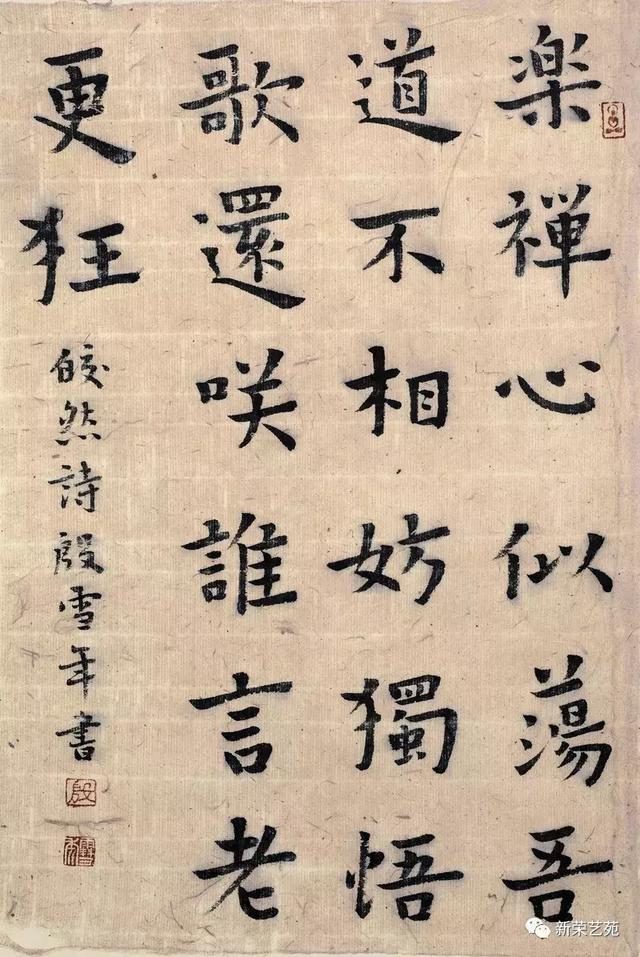 楽禪心似蕩吾
道不相妨獨悟
歌還咲誰言老
更狂
皎然詩殷雪年書
殷
新荣艺苑